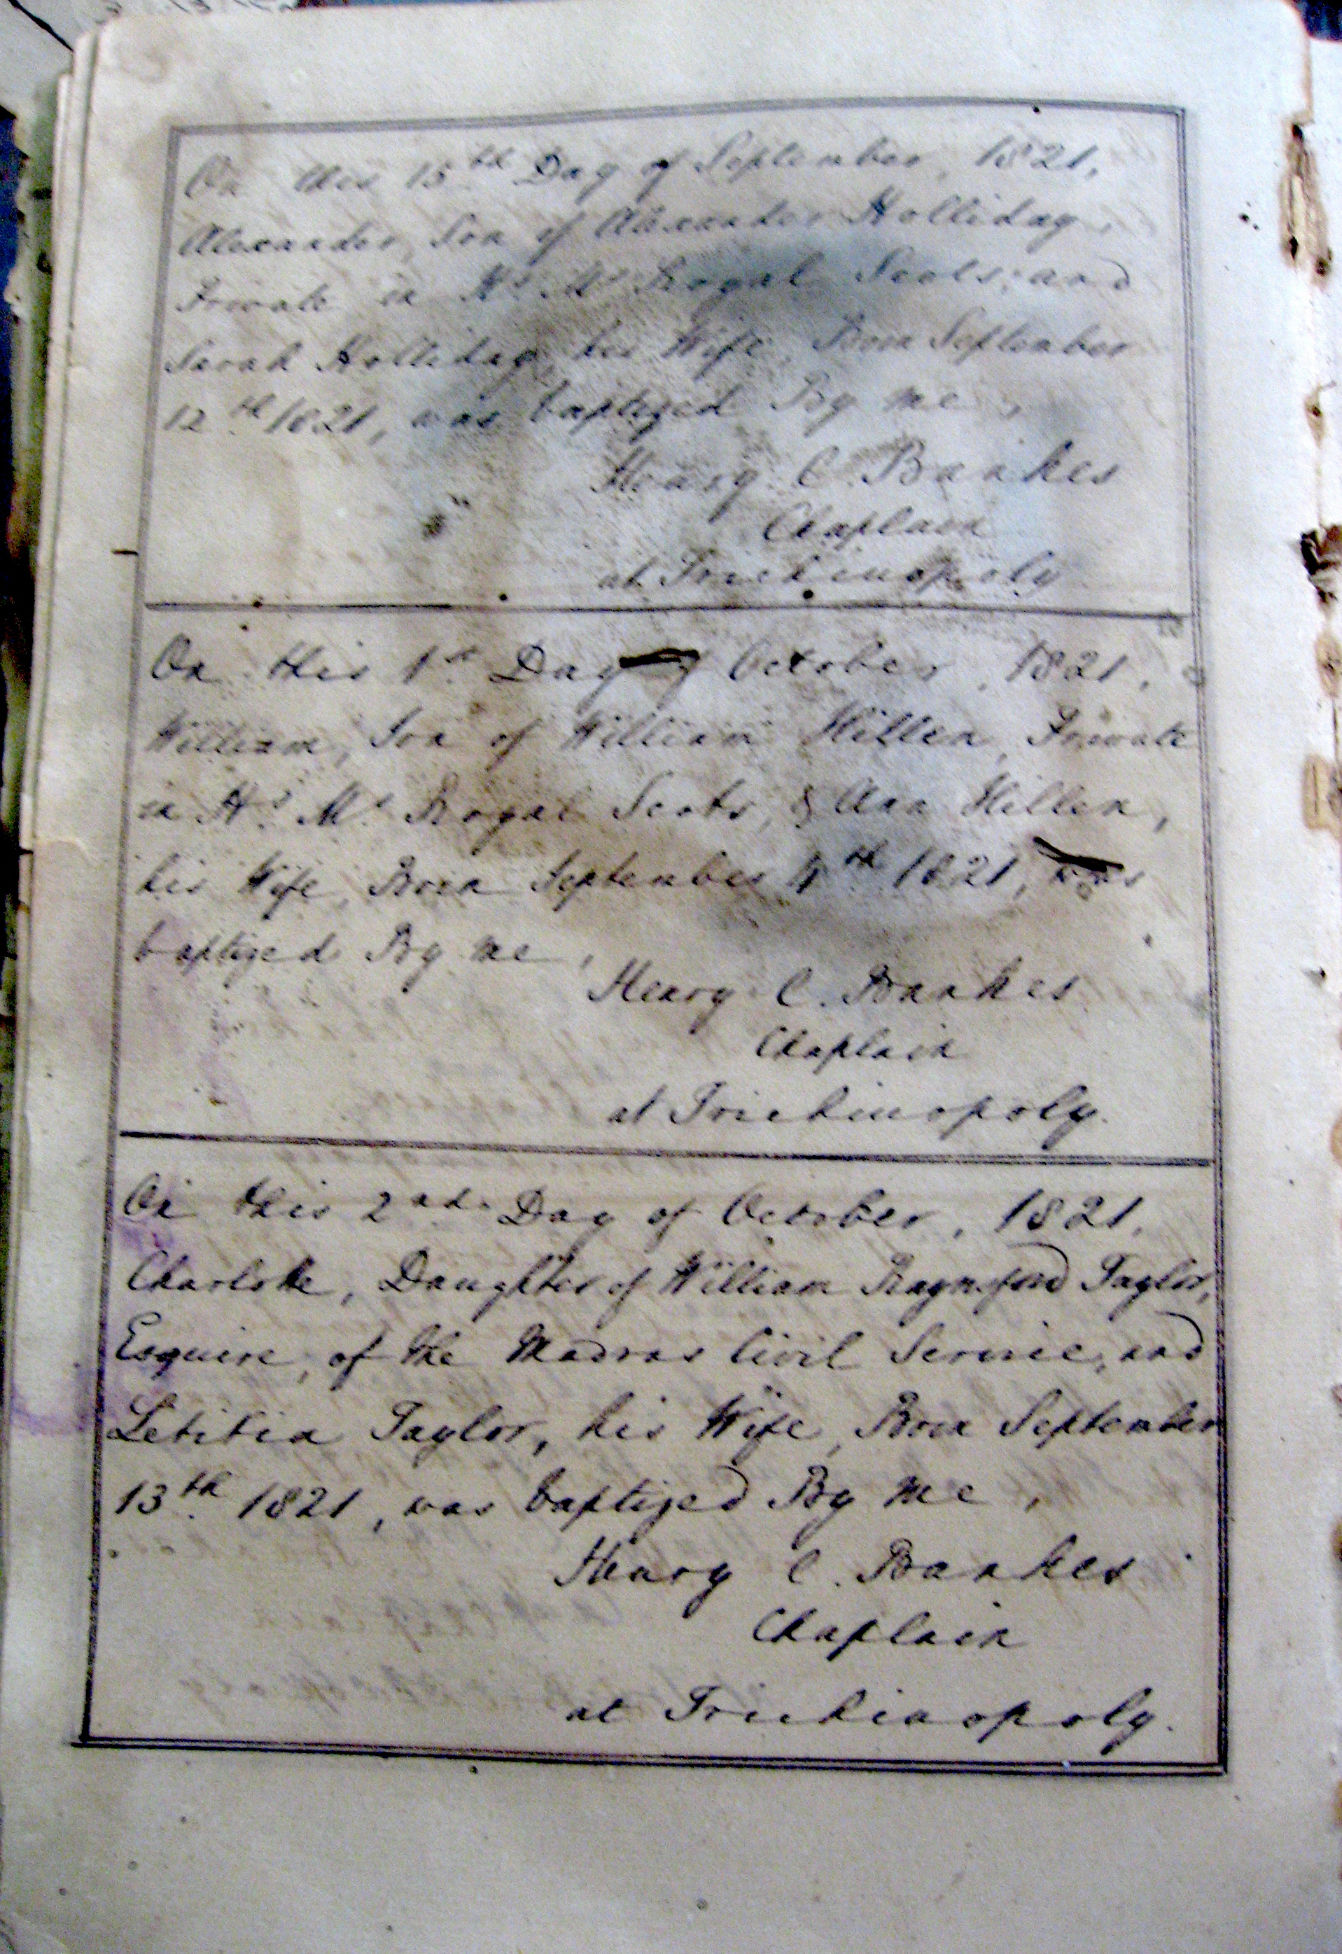 On this 15th Day of September, 1821,
Alexander, Son of Alexander Holliday,
Private in H.s M.s Royal Scots, and
Sarah Holliday, his Wife, Born September
12th 1821, was baptized By me,
Henry C. Bankes
Chaplain
at Trichinopoly
On this 1st Day of October, 1821,
William, Son of William Hillen, Private
in H.s M.s Royal Scots, & Ann Hillen,
his Wife, Born September 4th 1821, was
baptized By me,
Henry C. Bankes
Chaplain
at Trichinopoly.
On this 2nd Day of October, 1821,
Charlotte, Daughter of William Raynsford Taylor,
Esquire, of the Madras Civil Service, and
Letitia Taylor, his Wife, Born September
13th 1821, was baptized By me,
Henry C. Bankes
Chaplain
at Trichinopoly.